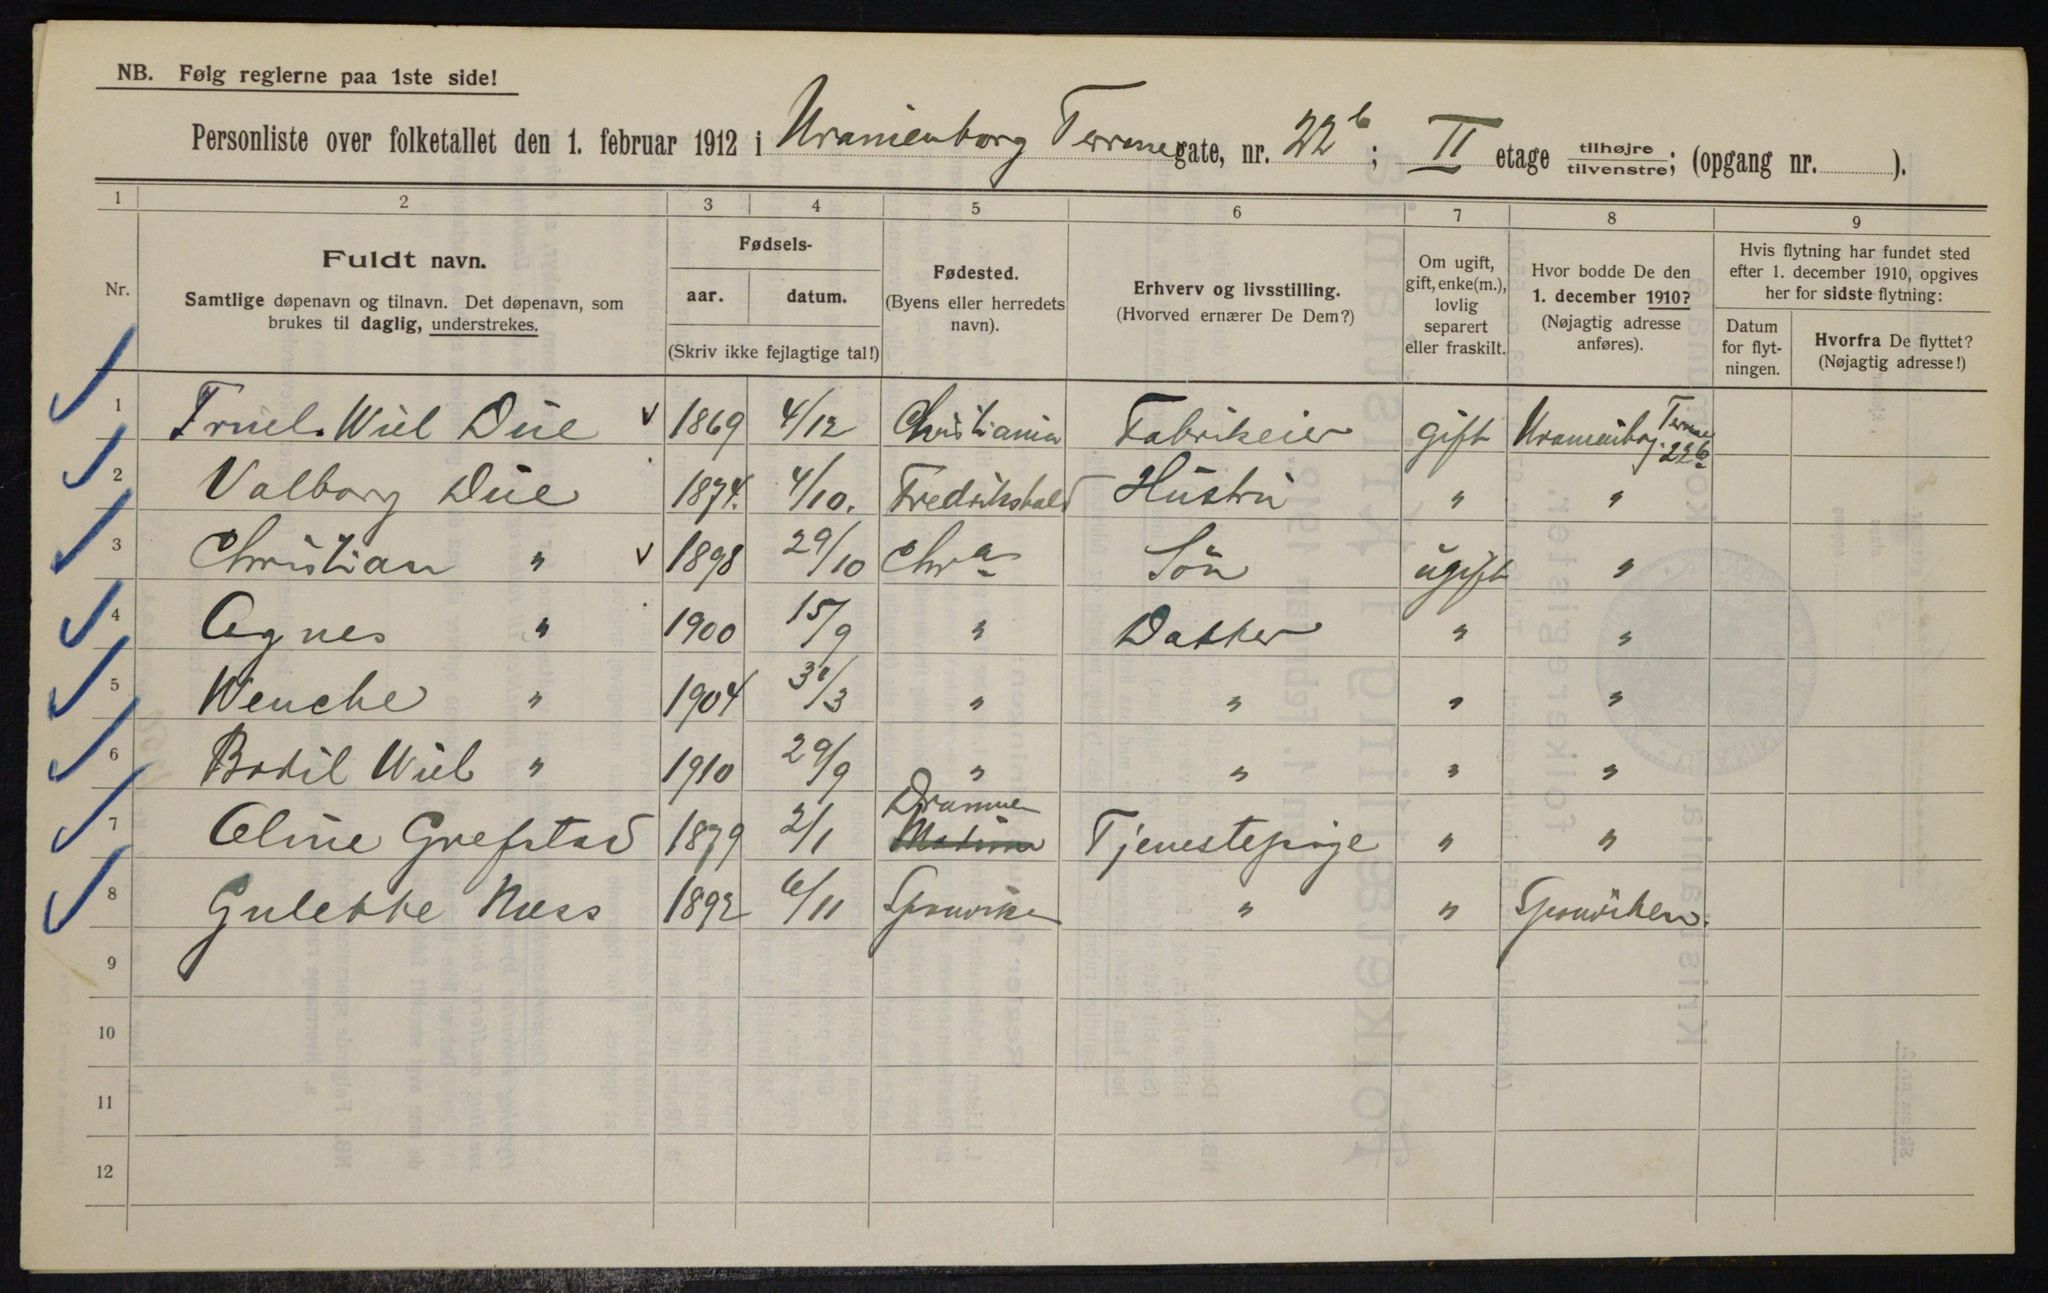 NB. Følg reglerne paa 1ste side!
Personliste over folketallet den 1. februar 1912 i Uranienborg Terrasse gate, nr. 22b; II etage tilhøjre/tilvenstre; (opgang nr. ).
1 2 3 4 5 6 7 8 9
Nr.
Fuldt navn.
Samtlige døpenavn og tilnavn. Det døpenavn, som
brukes til daglig, understrekes.
Fødsels-
aar. datum.
(Skriv ikke fejlagtige tal!)
Fødested.
(Byens eller herredets
navn).
Erhverv og livsstilling.
(Hvorved ernærer De Dem?)
Om ugift,
gift, enke(m.),
lovlig
separert
eller fraskilt.
Hvor bodde De den
1. december 1910?
(Nøjagtig adresse
anføres).
Hvis flytning har fundet sted
efter 1. december 1910, opgives
her for sidste flytning:
Datum
for flyt-
ningen.
Hvorfra De flyttet?
(Nøjagtig adresse!)
1 Truel. Wiel Due 1869 4/12 Christiania Fabrikeier gift Uranienborg Terrasse 22b
2 Valborg Due 1874. 4/10. Fredrikshald Hustru " "
3 Christian " 1898 29/10 Chra Søn ugift "
4 Agnes " 1900 15/9 " Datter " "
5 Wenche " 1904 31/3 " " " "
6 Bodil Wiel " 1910 29/9 " " " "
7 Oline Grefstad 1879 2/1 Drammen Tjenestepige " "
8 Gulekke Næss 1892 6/11 Sponviken " " Sponviken.
9
10
11
12